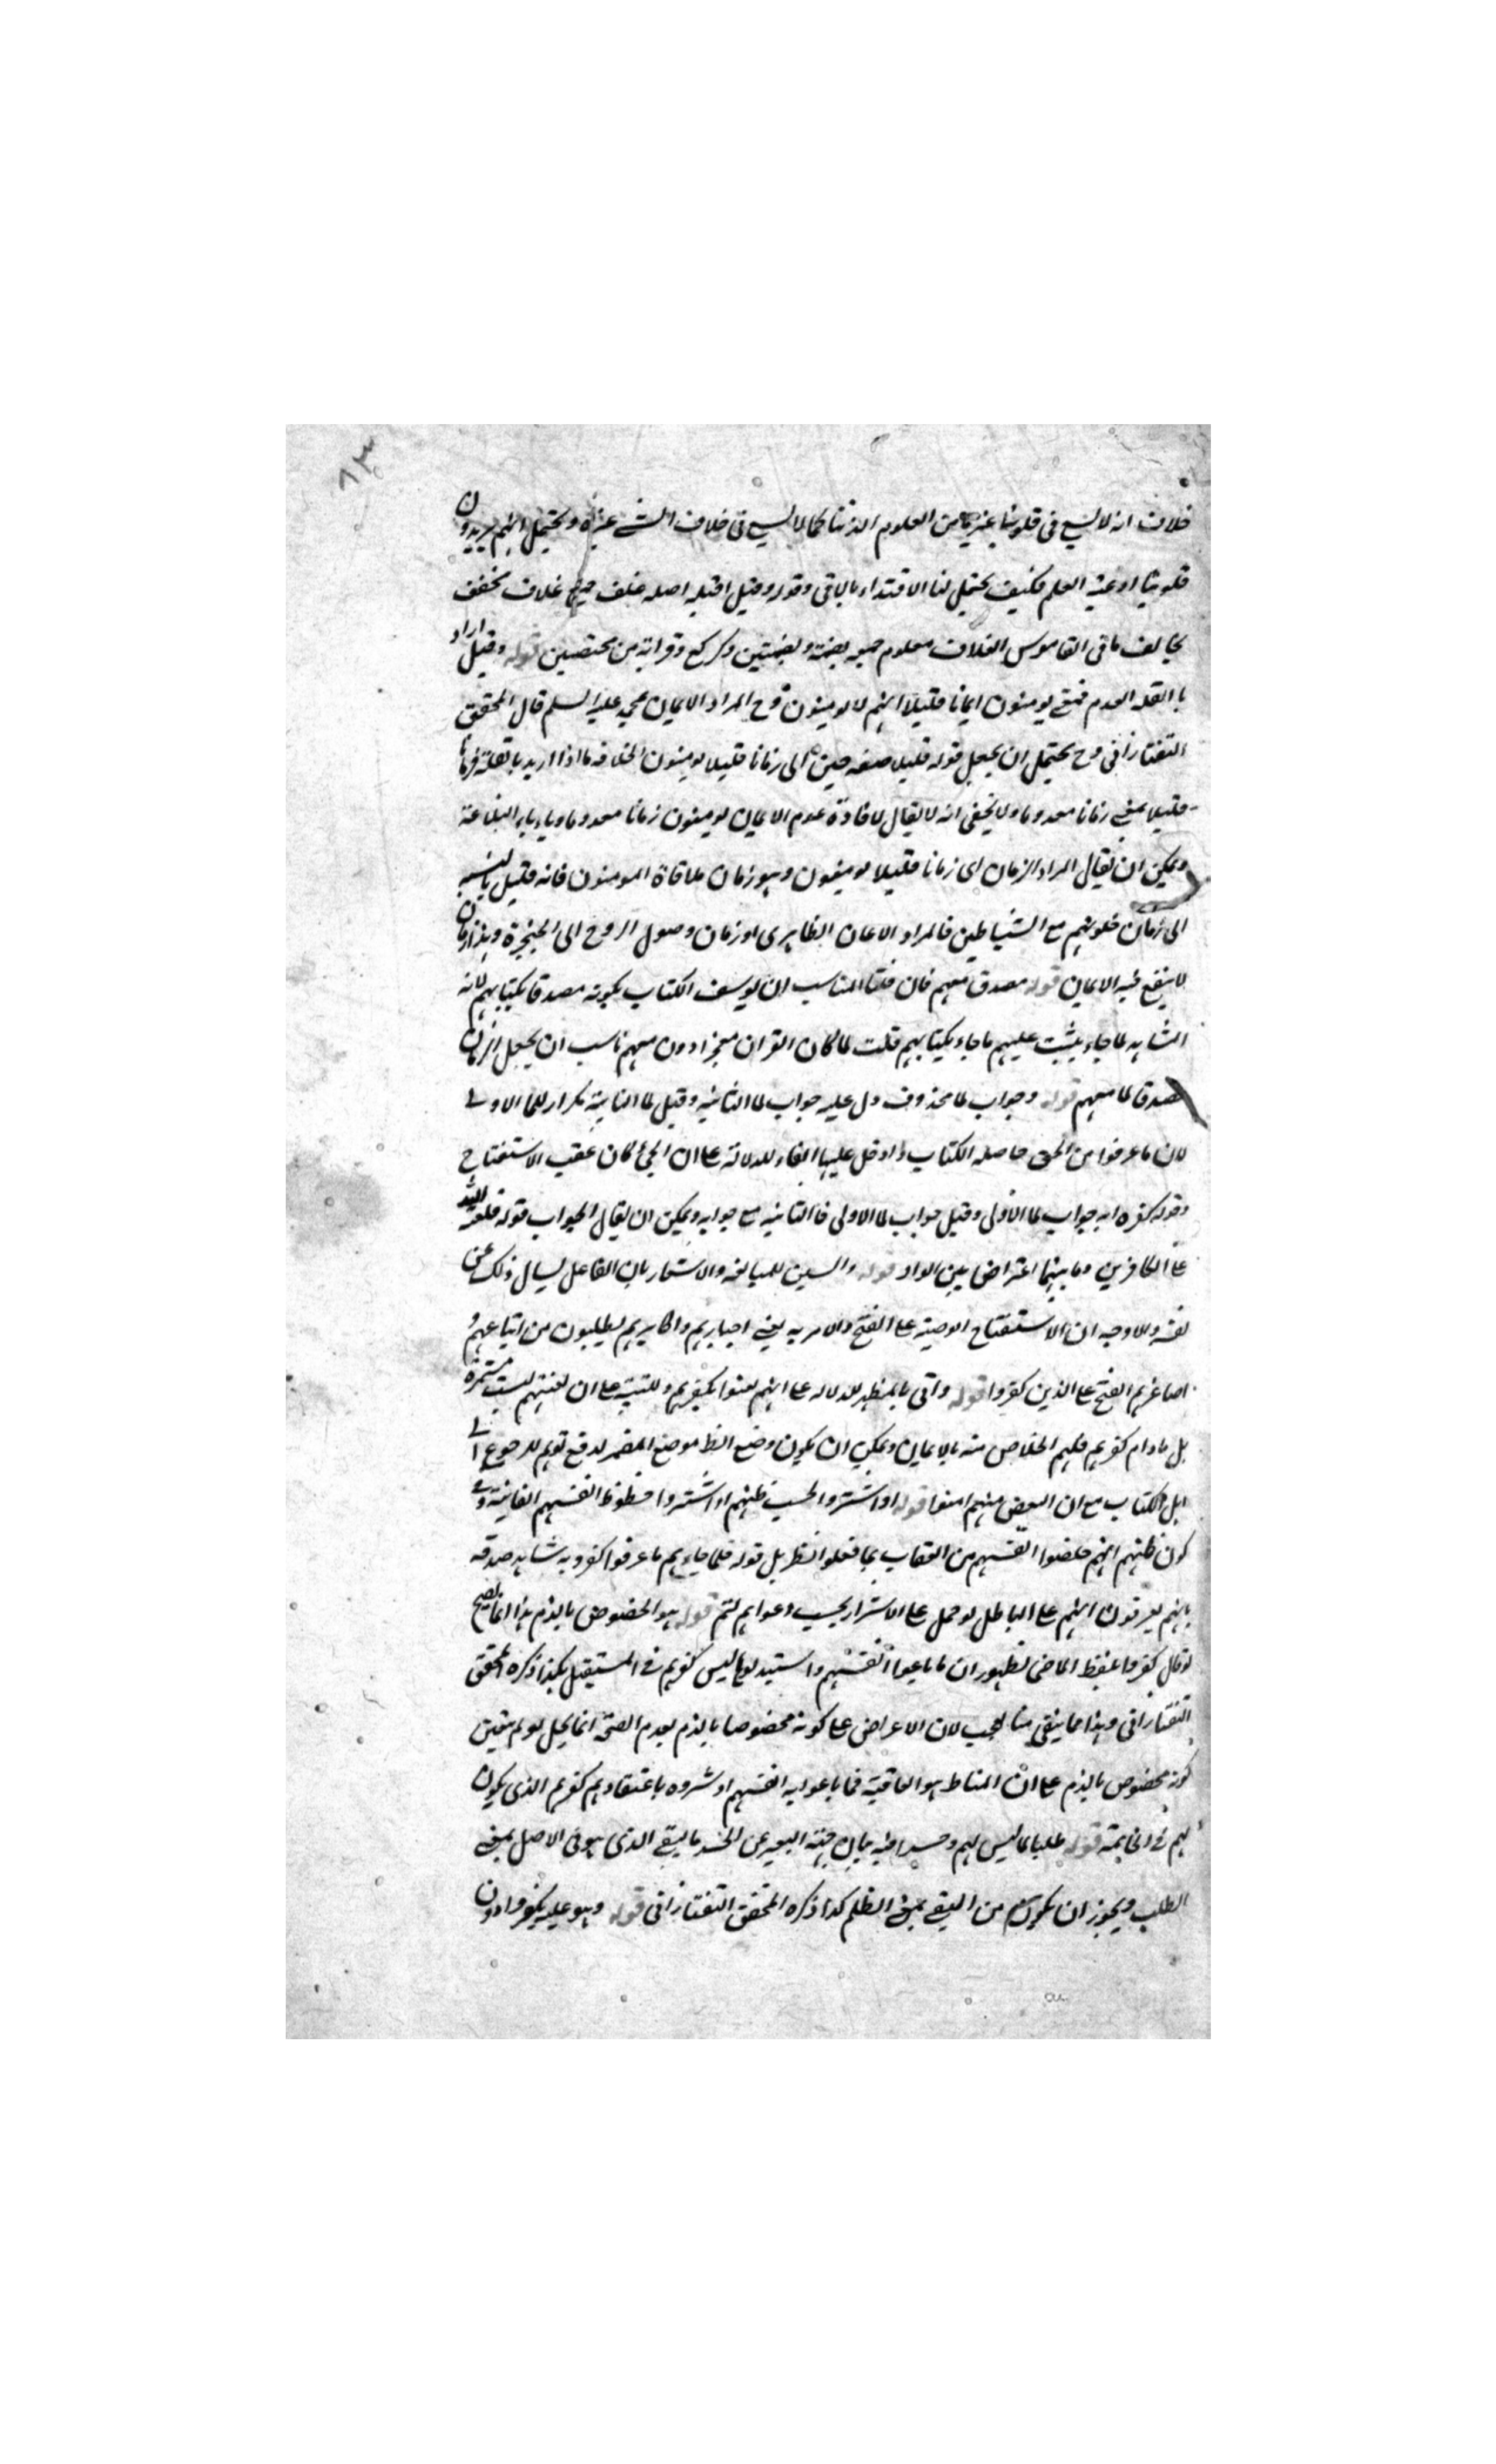 ٨٣
خلاف انه لا يسع فى قلوبنا غير من العلوم الذ كما لا يسع فى خلاف الشئ غيره ويحتمل انهم يريدون
قلوبنا اوعية العلم فكيف يحتمل لنا الاقتداء بالباقى وقوله وقيل اصله غلف جمع غلاف مخفف
يخالف ما فى القاموس الغلاف معلوم جمعه بضمة وبضمتين وكركع وقراءته من محتصين قوله وقيل اراد
بالقله العدم فمعنى يومنون ايمانا قليلا انهم لا يومنون وح المراد الايمان بمحمد عليه السلم قال المحقق
التفتازانى وح يحتمل ان يجعل قوله قليلا صفة حين اى زمانا قليلا يومنون بخلافه ما اذا اريد بالقلة
قليلا بمعنى زمانا معدوما ولا يخفى انه لا يقال لافادة عدم الايمان يومنون زمانا معدوما وياباه البلاغة
ويمكن ان يقال المراد الزمان اى زمانا قليلا يومنون وهو زمان ملاقاة المومنون فانه قليل بالنسبة
الى زمان خلوتهم مع الشياطين فالمراد الايمان الظاهرى او زمان وصول الروح الى الحنجرة وهذا زمان
لا ينفع فيه الايمان قوله مصدق معهم فان قلت المناسب ان يوسف الكتاب بكونه مصدقا بكتابهم لانه
الشاهد لما جاء يثبت عليهم ما جاء بكتابهم قلت لما كان القران معجزا دون معهم ناسب ان يجعل القران
مصدقا لما معهم قوله وجواب لما محذوف دل عليه جواب لما الثانية وقيل لما الثانية تكرار للما الاولى
لان ما عرفوا من الحق حاصله الكتاب وادخل عليها الفاء للدلالة على ان المجئ كان عقب الاستفتاح
وقوله كفروا به جواب لما الاولى وقيل جواب لما الاولى فالثانيه مع جوابه ويمكن ان يقال الجواب قوله فلعنة الله
على الكافرين وما بينهما اعتراض بين الواد قوله والسين للمبالغه والاشعار بان الفاعل يسال ذلك عن
نفسه والاوجه ان الاستفتاح الوصية على الفتح والامر به يعنى احبارهم واكابرهم يطلبون من اتباعهم و
اصاغرهم الفتح على الذين كفروا قوله واتى بالمظهر للدلاله على انهم لعنوا بكفرهم وللتنبيه على ان لعنتهم ليست مستمرة
بل ما دام كفرهم فلهم الخلاص منه بالايمان ويمكن ان يكون وضع الظ موضع المضمر لدفع توهم الرجوع الى
اهل الكتاب مع ان البعض منهم امنوا قوله او اشتروا بحسب ظنهم اذ اشتروا حظوظ انفسهم الفانية وفى
كون ظنهم انهم خلصوا انفسهم من العقاب بما فعلوا نظر بل قوله فلما جاءهم ما عرفوا كفروا به شاهد صدقه
بانهم يعرفون انهم على الباطل لو حمل على الاشترا بحسب دعواهم لتم قوله هو المخصوص بالذم هذا انما يصح
لو قال كفروا بلفظ الماضى لظهور ان ما باعوا انفسهم واستبدلوها ليس كفرهم فى المستقبل هكذا ذكره المحقق
التفتازانى وهذا مما يتعجب لان الاعراض على كونه مخصوصا بالذم بعدم الصحة انما يحل لو لم يتعين
كونه مخصوص بالذم على ان المناط هو العاقبة فما باعوا به انفسهم او شروه باعتقادهم كفرهم الذى يكون
لهم فى الخاتمة قوله طلبا لما ليس لهم وحسدا فيه بيان جهة التعبير عن الحسد بالبغى الذى هو فى الاصل بمعنى
الطلب ويجوز ان يكون من البغى بمعنى الظلم كذا ذكره المحقق التفتازانى قوله وهو عليه يكفروا دون